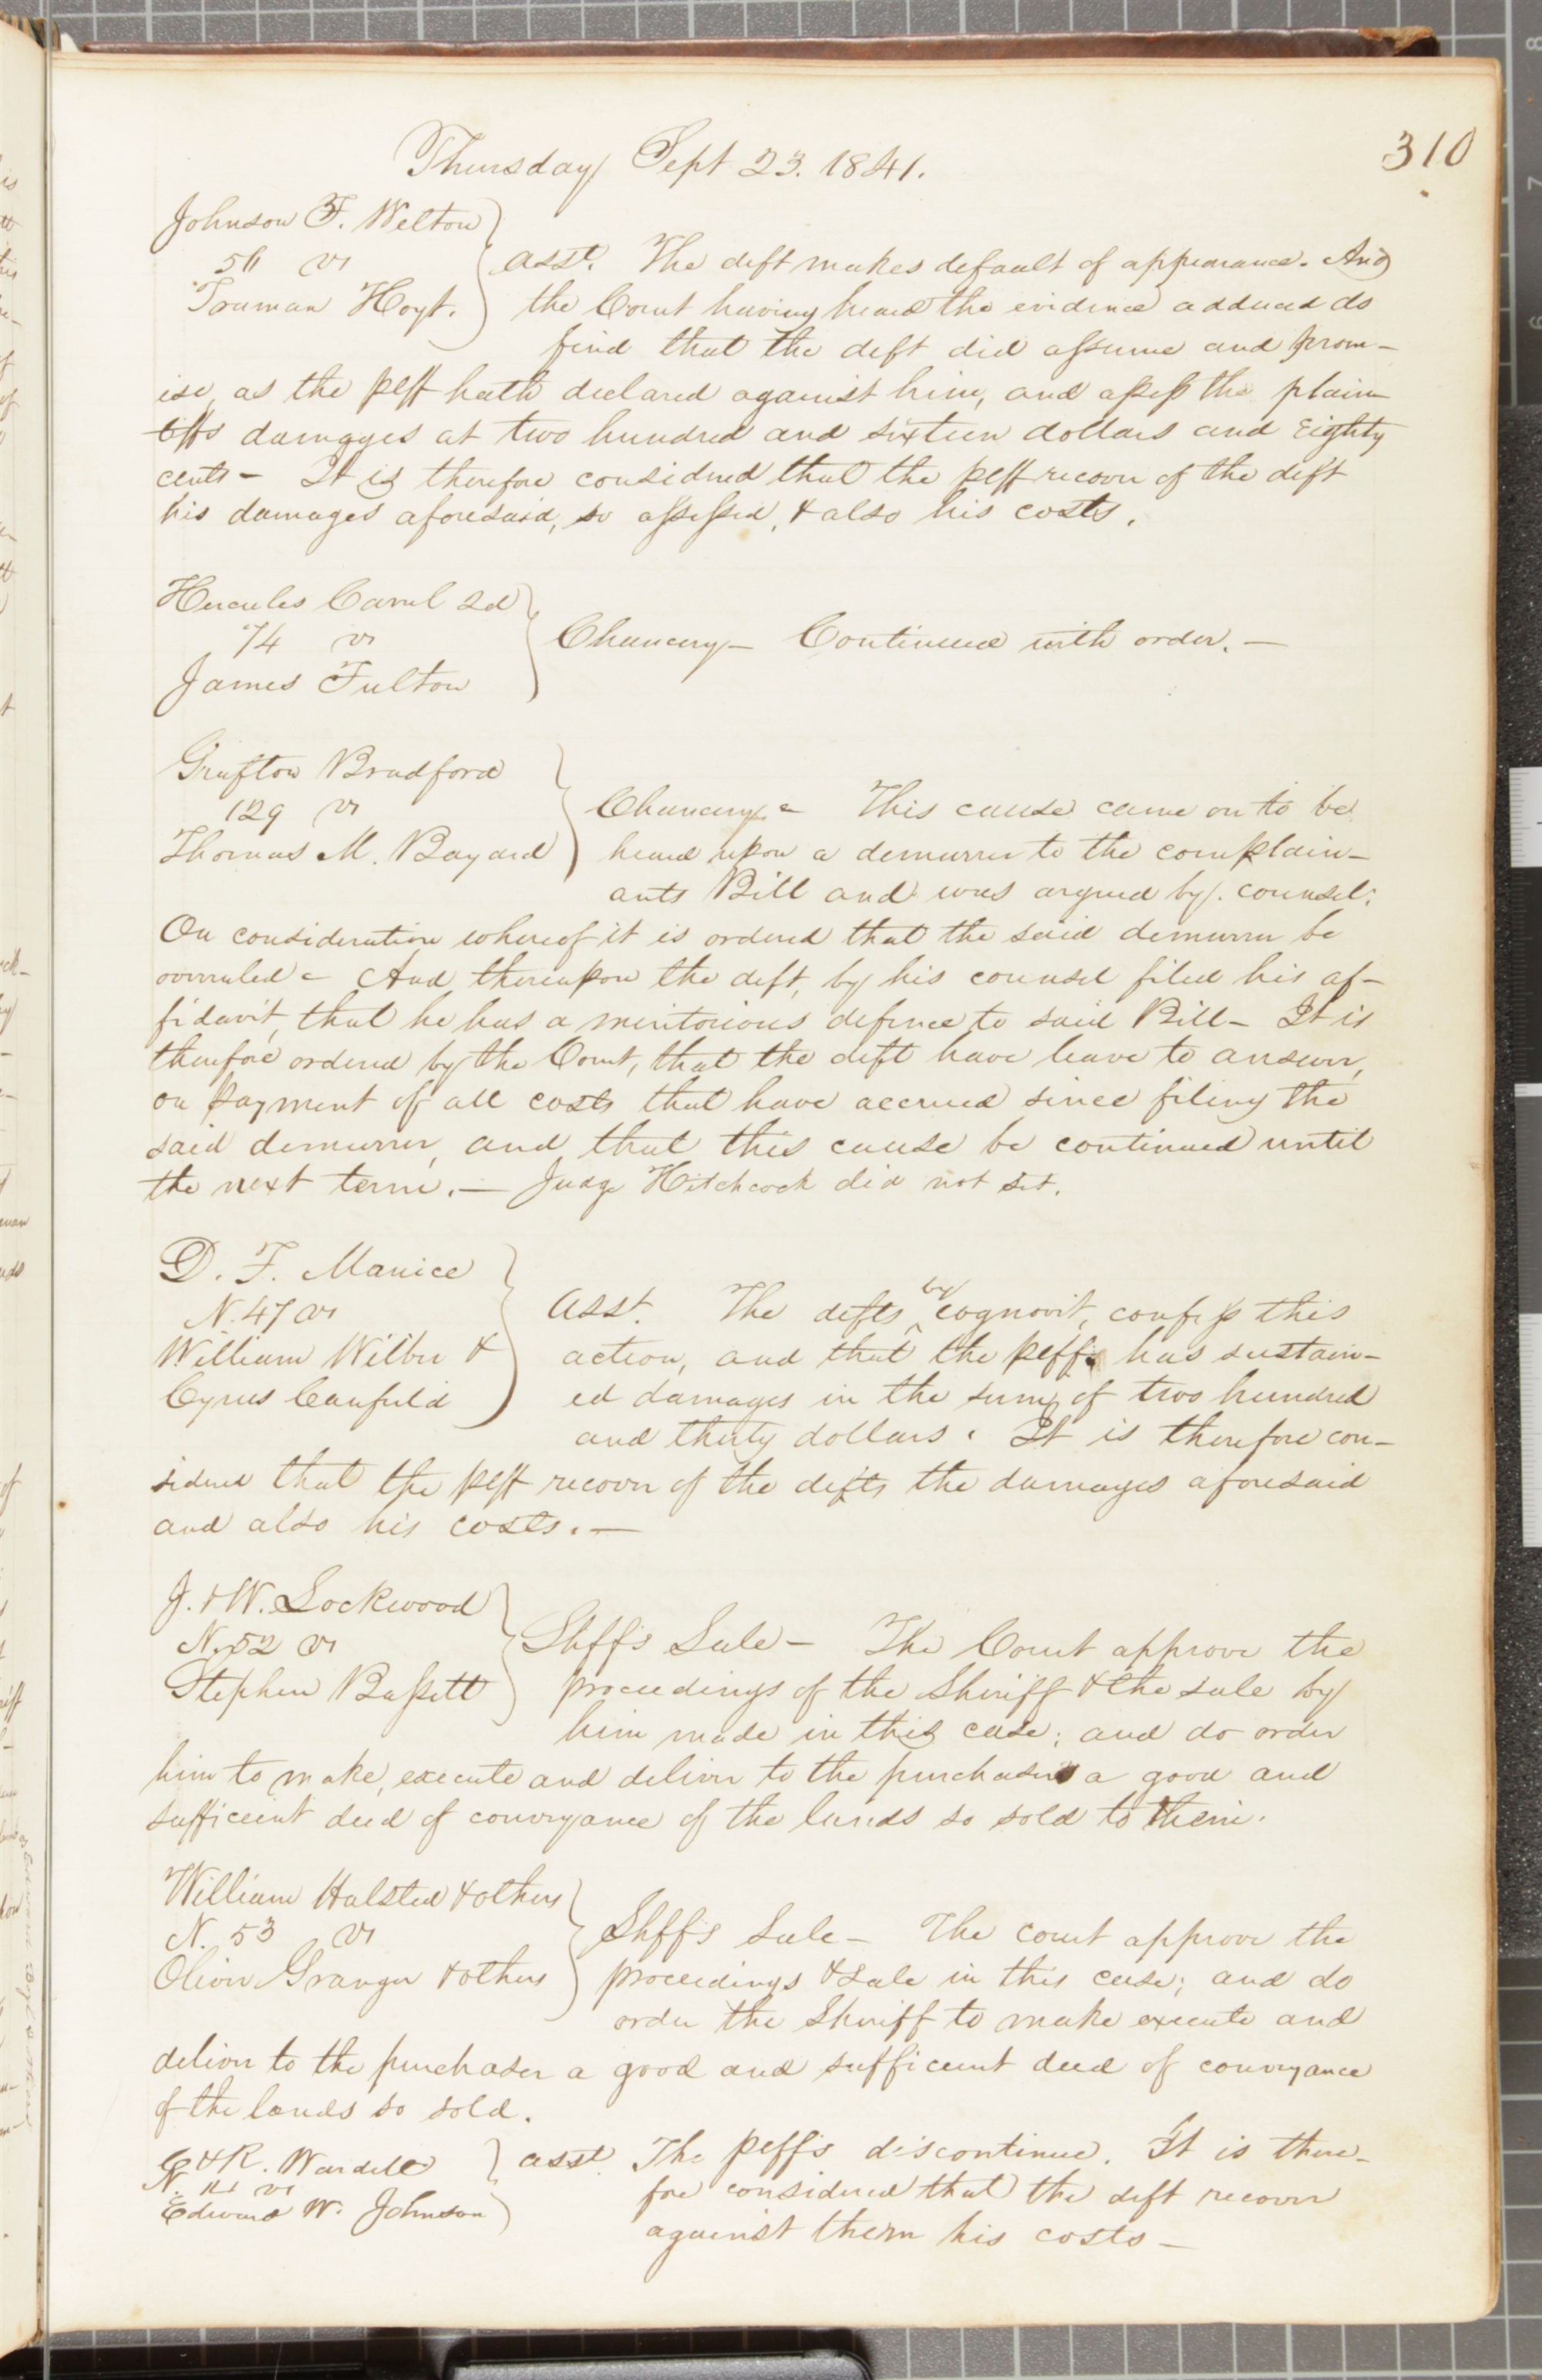 310
Thursday Sept 23. 1841.
Johnson F. Welton
56 vs
Truman Hoyt.
Asst. The deft makes default of appearance. And
the Court having heard the evidence adduced do
find that the deft did assume and prom-
ise, as the plff hath declared against him, and assess the plain
tiffs damages at two hundred and sixteen dollars and Eighty
cents - It is therefore considered that the plff recover of the deft
his damages aforesaid, so assessed, & also his costs.
Hercules Carrel 2d
74 vs
James Fulton
Chancery - Continued with order. -
Grafton Bradford
129 vs
Thomas M. Bayard
Chancery - This cause came on to be
heard upon a demurrer to the complain-
ants Bill and was argued by counsel.
On consideration whereof it is ordered that the said demurrer be
overruled - And thereupon the deft, by his counsel filed his af-
fidavit, that he has a meritorious defence to said Bill - It is
therefore ordered by the Court, that the deft have leave to answer,
on payment of all costs that have accrued since filing the
said demurrer, and that this cause be continued until
the next term. - Judge Hitchcock did not sit.
D. F. Manice
N. 47 vs
William Wilber &
Cyrus Canfield
Asst. The defts by cognovit, confess this
action, and that the plff has sustain-
ed damages in the sum of two hundred
and thirty dollars. It is therefore con-
sidered that the plff recover of the defts the damages aforesaid
and also his costs. -
J. & W. Lockwood
N. 52 vs
Stephen Bassett
Shff's Sale - The Court approve the
proceedings of the Sheriff & the sale by
him made in this case; and do order
him to make, execute and deliver to the purchasers a good and
sufficient deed of conveyance of the lands so sold to them.
William Halsted & others
N. 53 vs
Oliver Granger & others
Shff's Sale - The court approve the
proceedings & sale in this case; and do
order the Sheriff to make execute and
deliver to the purchaser a good and sufficient deed of conveyance
of the lands so sold.
& R. Wardell
N. vs
Edward W. Johnson
asst The plffs discontinue. It is there-
fore considered that the deft recover
against them his costs -